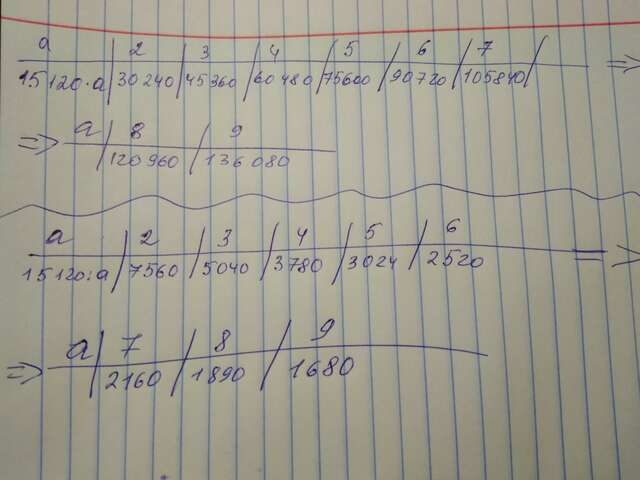 a 2 3 4 5 6 7
15120·a 30240 45360 60480 75600 90720 105840 =>
=> a 8 9
120960 136080
a 2 3 4 5 6
15120:a 7560 5040 3780 3024 2520 =>
=> a 7 8 9
2160 1890 1680